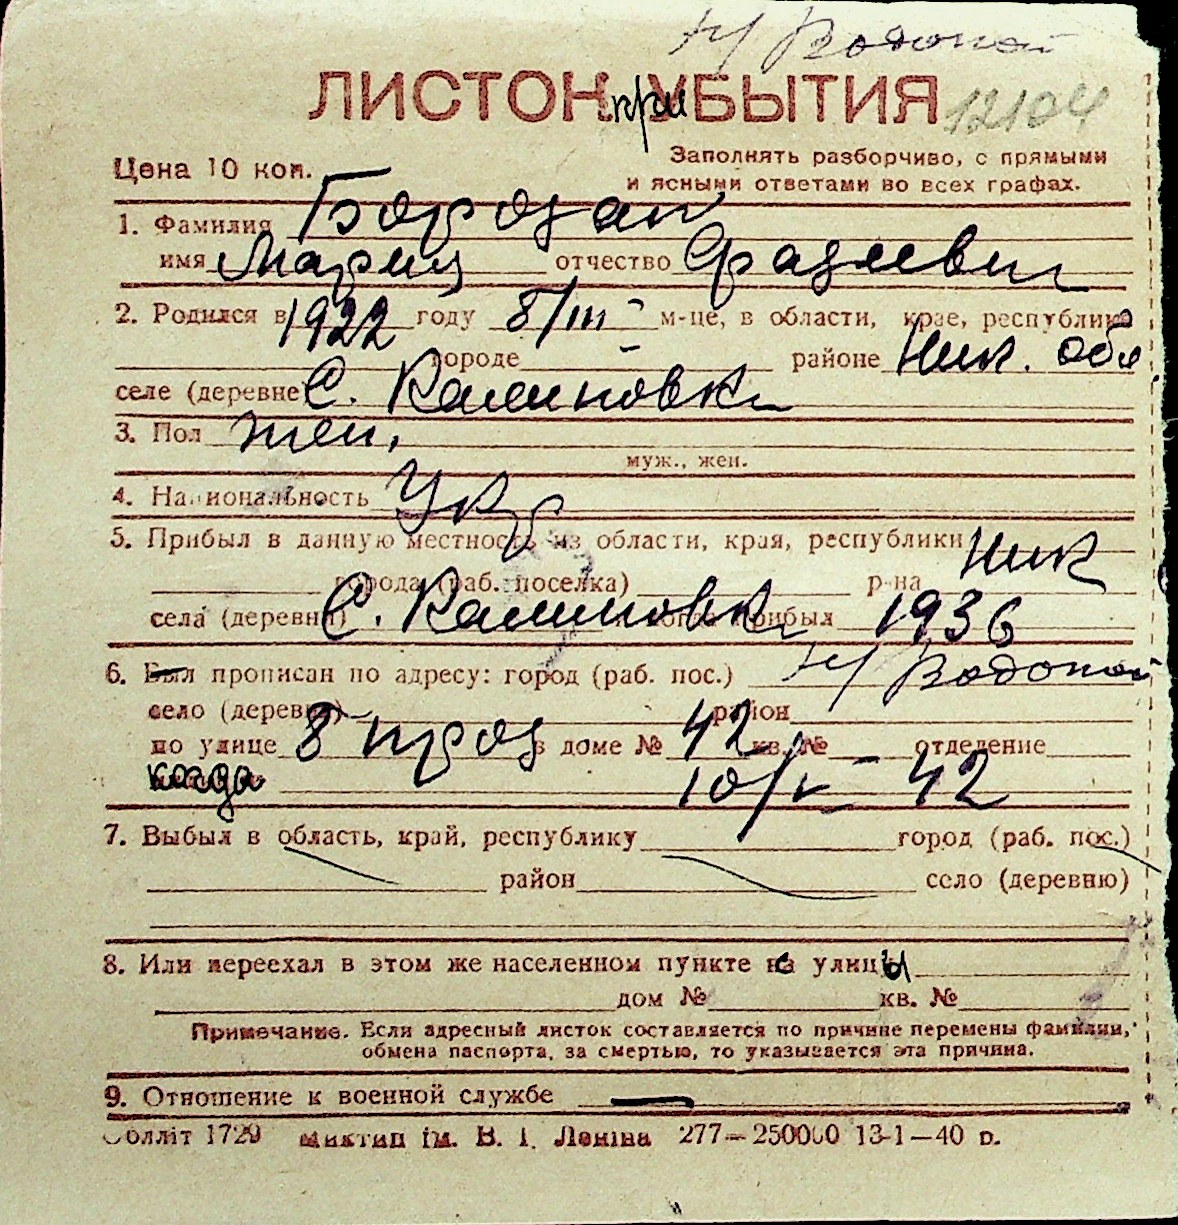 н/ Водопой
ЛИСТОК при УБЫТИЯ 12104
Цена 10 коп.
Заполнять разборчиво, с прямыми
и ясными ответами во всех графах.
1. Фамилия Борозан
имя Мария отчество
2. Родился в 1922 году 8/III м-це, в области, крае, республике
городе – районе Ник. обл
селе (деревне) С. Калиновка
3. Пол жен.
муж., жен.
4. Национальность Укр
5. Прибыл в данную местность из области, края, республики Ник
города (раб. поселка) р-на
села (деревни) С. Калиновка и когда прибыл 1936
6. Был прописан по адресу: город (раб. пос.) н/ Водопой
село (деревня) район
по улице 8 прод в доме № 42 кв. № отделение
когда 10/V – 42
7. Выбыл в область, край, республику город (раб. пос.)
район село (деревню)
8. Или переехал в этом же населенном пункте с улицы
дом № кв. №
Примечание. Если адресный листок составляется по причине перемены фамилии,
обмена паспорта, за смертью, то указывается эта причина.
9. Отношение к военной службе —
Обллiт 1729 Миктип iм. В. I. Ленiна 277—250000 13-1—40 р.